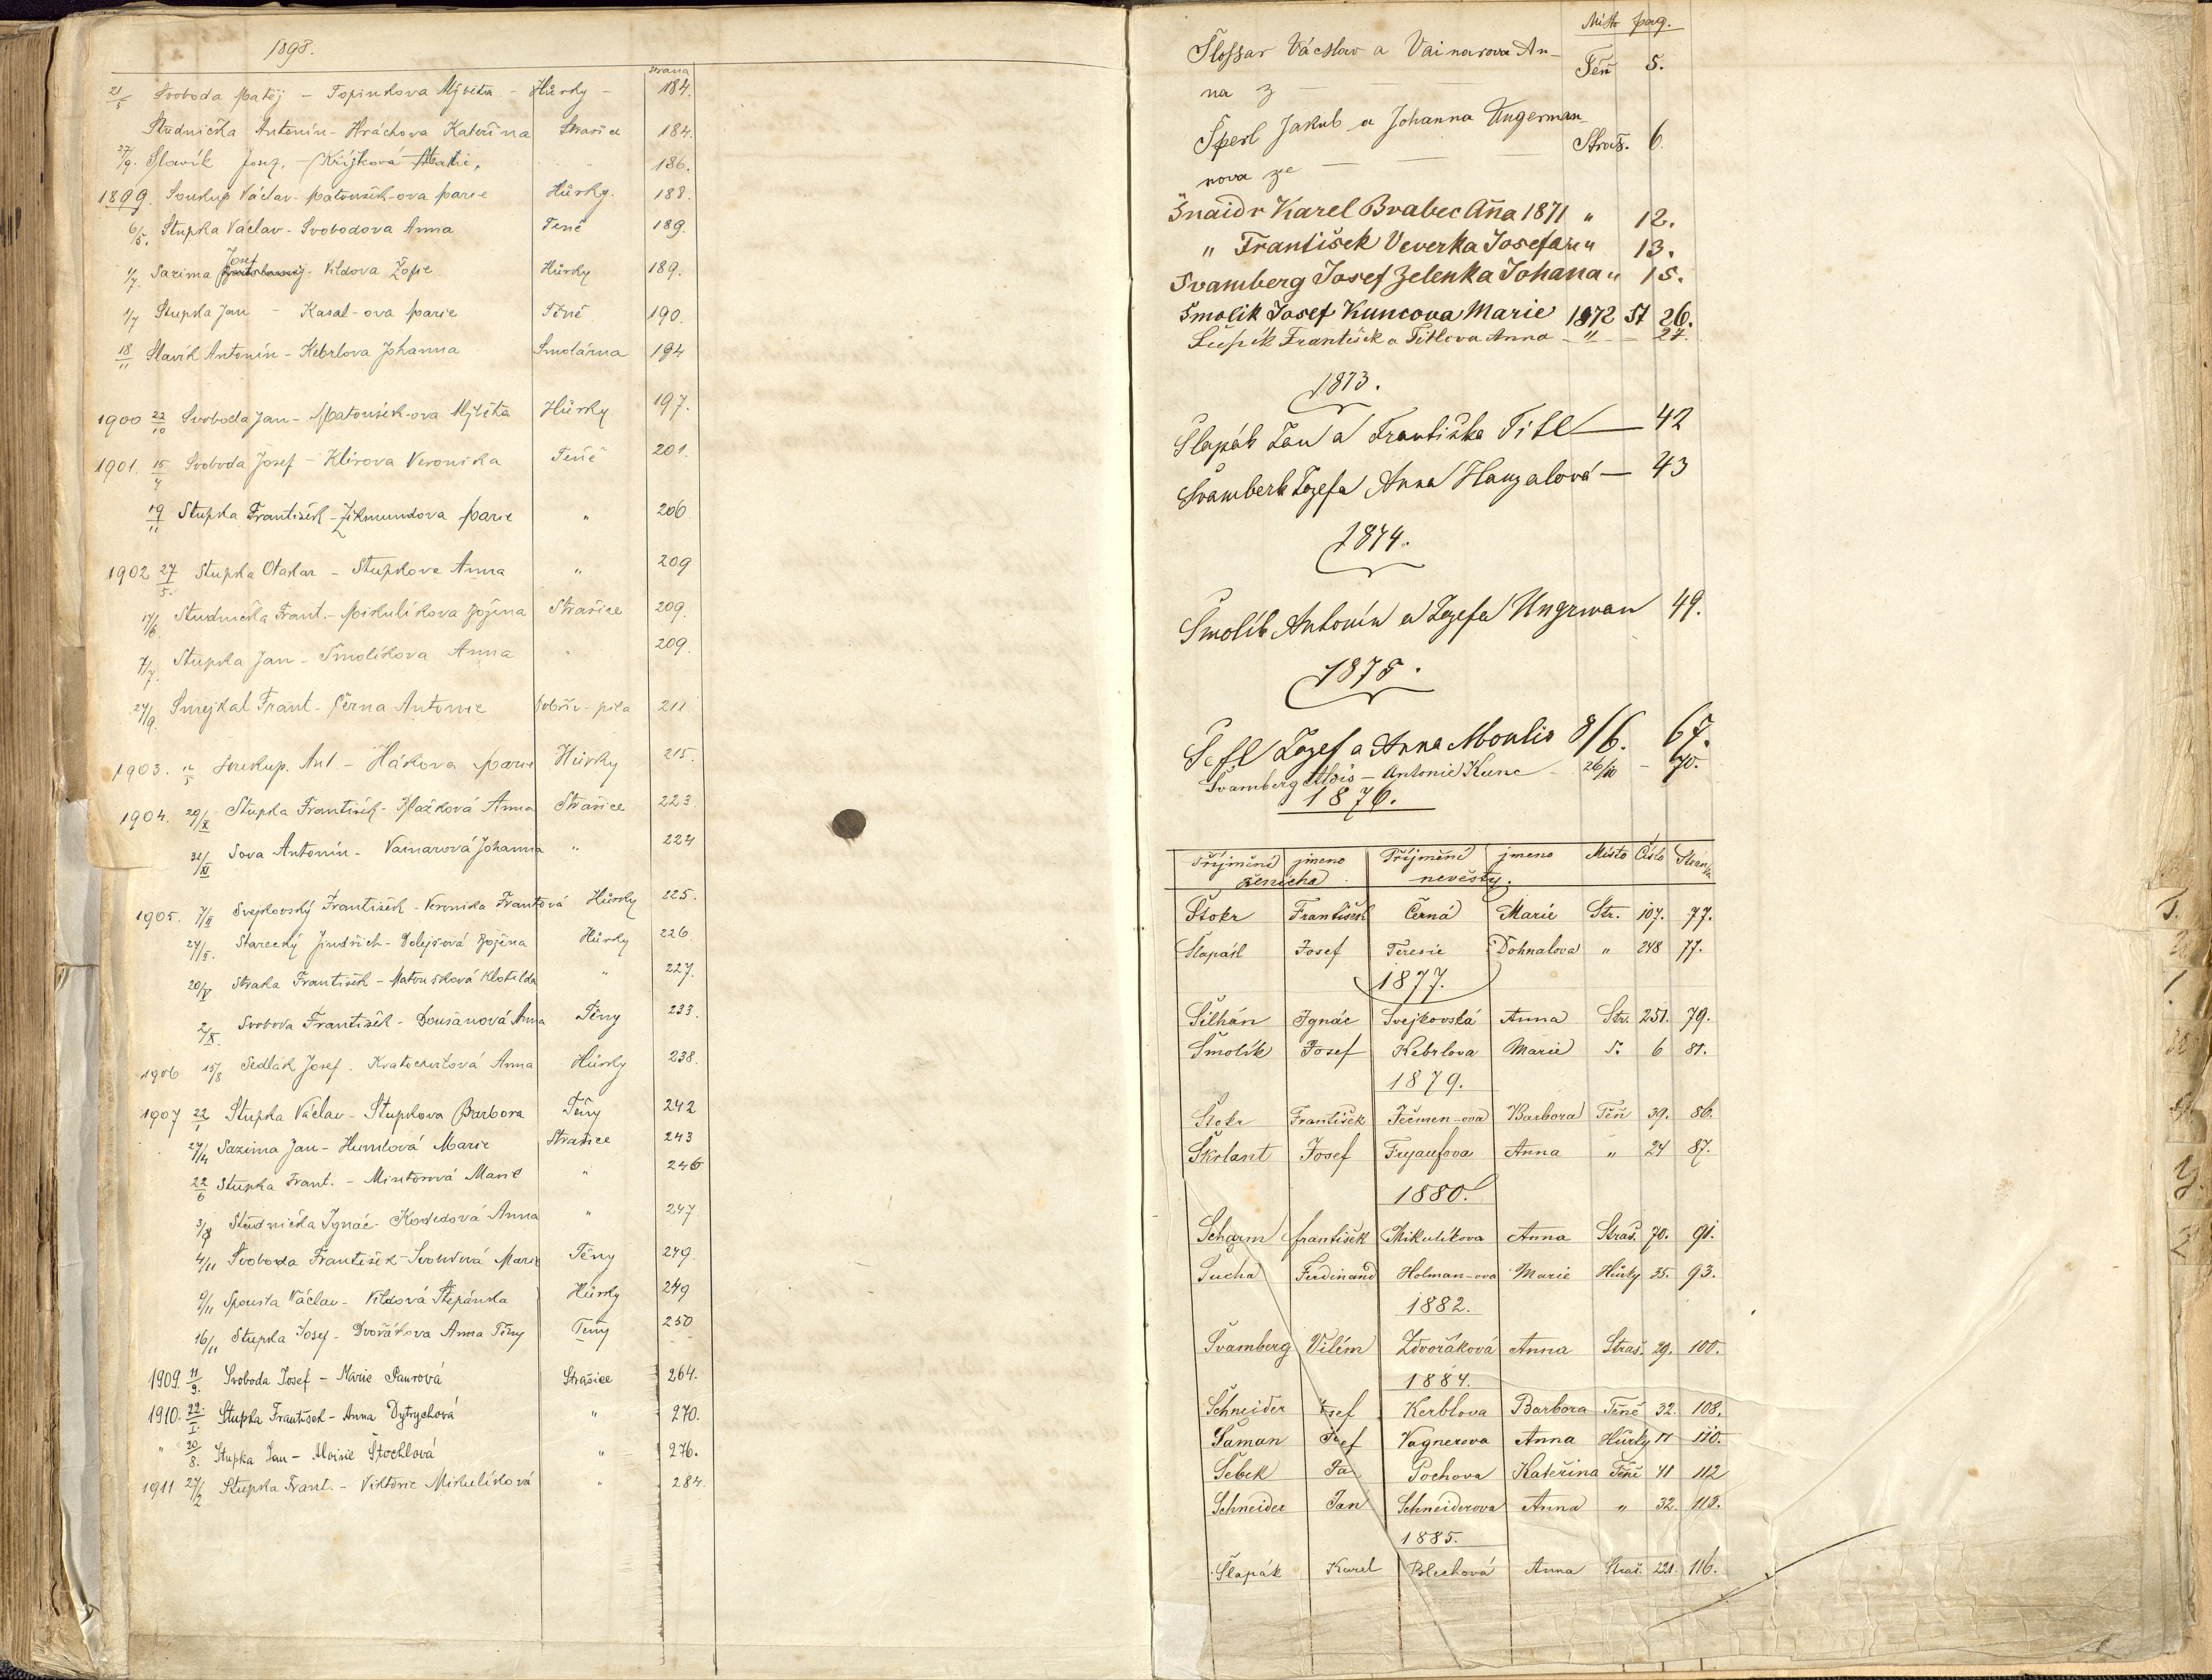 1898.
strana
21/5 Svoboda Matěj – Topinkova Alžběta – Hůrky – 184.
Studnička Antonín – Hráchova Kateřina Strašice 184.
27/9. Slavík Josef, – Křížková Marie, " 186.
1899. Soukup Václav – Matoušek-ova Marie Hůrky. 188.
6/5. Stupka Václav – Svobodova Anna Tené 189.
Josef
1/7. Sazima – Vildova Žofie Hůrky 189.
1/7 Stupka Jan – Kasal-ova Marie Těně 190.
18/11 Slavík Antonín – Kebrlova Johanna Smolárna 194
1900 22/10 Svoboda Jan – Matoušek-ova Alžběta Hůrky 197.
1901. 15/4 Svoboda Josef – Klírova Veronika Teně 201.
19/11 Stupka František – Zikmundova Marie " 206
1902 27/5. Stupka Otakar – Stupkova Anna " 209
17/6 Studnička Frant. – Mikulíkova Božena Strašice 209.
7/7. Stupka Jan – Smolíkova Anna " 209.
24/9. Smejkal Frant – Černa Antonie Dobřív – pila 211
1903. 12/5 Soukup. Ant. – Hákova Marie Hůrky 215.
1904. 29/X Stupka František – Blažková Anna Strašice 223
/XI Sova Antonín – Vainarová Johanna " 224
1905. 7/II Svejkovský František – Veronika Frantová Hůrky 225.
27/II. Starecký Jindřich – Dolejšová Božena Hůrky 226
20/V Straka František – Matoušková Klotilda " 227.
2/X. Svoboda František – Doušanová Anna Těny 233.
1906 15/8 Sedlák Josef. Kratochvilová Anna Hůrky 238.
1907 22/1 Stupka Václav – Stupkova Barbora Těny 242
27/4 Sazima Jan – Humlová Marie Strašice 243
22/6 Stupka Frant. – Mintorová Marie " 246
3/8 Studnička Ignác – Kovedová Anna " 247
4/11 Svoboda František – Marie Těny 249.
9/11 Spousta Václav – Vildová Štěpánka Hůrky 249
16/11 Stupka Josef – Dvořákova Anna Těny Teny 250
1909. 11/9. Svoboda Josef – Marie Paurová Strašice 264.
1910. 22./I. Stupka František – Anna Dytrychová " 270.
" 20/8. Stupka Jan – Aloisie Štochlová " 276.
1911 27/2 Stupka Frant. – Viktorie Mikulíková " 284.
Místo pag.
Šlossar Václav a Vainarova An-
na z — Těň 5.
Šperl Jakub a Johanna Ungerman-
nova ze — — — Straš. 6
Šnaidr Karel Brabec Aña 1871 " 12.
" František Veverka Josefa " " 13.
Švamberg Josef Zelenka Johana " 15.
Šmolik Josef Kuncova Marie 1872 St 26.
František a Titlova Anna – " – 27.
1873.
Šlapák Jan a Františka Titl — 42
Švamberk Jozefa Anna Hanzalová — 43
1874.
Šmolík Antonín a Jozefa Ungrman 49.
1875.
Šefl Jozef a Anna Moulis 8/6. 67.
Švamberg Alois – Antonie Kunc – 26/10 – 70.
1876.
Příjmění jmeno Příjmění jmeno Místo Číslo Stránka
ženicha. nevěsty.
Štokr František Černá Marie Str. 107. 77.
Šlapák Josef Teresie Dohnalova " 248 77.
1877.
Šilhán Ignác Svejkovská Anna Str. 251. 79.
Šmolík Josef Kebrlova Marie S. 6 81.
1879.
Štokr František Ječmen-ova Barbora Těň 39. 86.
Škrlant Josef Anna " 24 87.
1880.
Scharm František Mikulíkova Anna Straš. 70. 91.
Šucha Ferdinand Holman-ova Marie Hůrky 35. 93.
1882.
Švamberg Vilém Zdvořáková Anna Straš. 29. 100.
1884.
Schneider Josef Kerblova Barbora Těně 32. 108.
Šaman Josef Vagnerova Anna Hůrky 11 110.
Šebek Ja Pochova Kateřina Těně 41 112
Schneider Jan Schneiderova Anna " 32. 113.
1885.
Šlapák Karel Blechová Anna Straš. 221. 116.